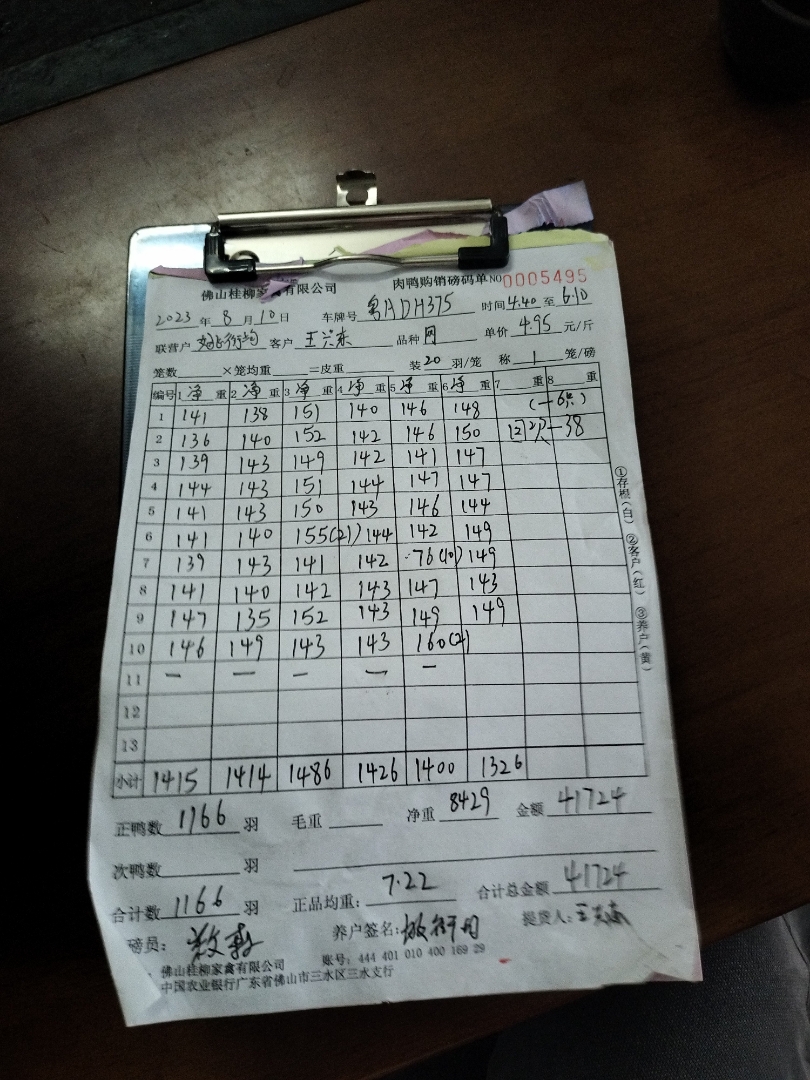 佛山桂柳家禽有限公司 肉鸭购销磅码单 NO 0005495
2023 年 8 月 10 日 车牌号 粤ADH375 时间 4:40 至 6:10
联营户 客户 王兴东 品种 网 单价 4.95 元/斤
笼数 ×笼均重 =皮重 装 20 羽/笼 称 1 笼/磅
编号 1 净重 2 净重 3 净重 4 净重 5 净重 6 净重 7 重 8 重
1 141 138 151 140 146 148 (-6只)
2 136 140 152 142 146 150 -38
3 139 143 149 142 141 147
4 144 143 151 144 147 147
5 141 143 150 143 146 144
6 141 140 155(21) 144 142 149
7 139 143 141 142 76(10) 149
8 141 140 142 143 147 143
9 147 135 152 143 149 149
10 146 149 143 143 160
11 — — — — —
12
13
小计 1415 1414 1486 1426 1400 1326
正鸭数 1166 羽 毛重 净重 8429 金额 41724
次鸭数 羽
合计数 1166 羽 正品均重: 7.22 合计总金额 41724
磅员: 养户签名: 提货人: 王兴东
佛山桂柳家禽有限公司 账号: 444 401 010 400 169 29
中国农业银行广东省佛山市三水区三水支行
①存根(白) ②客户(红) ③养户(黄)